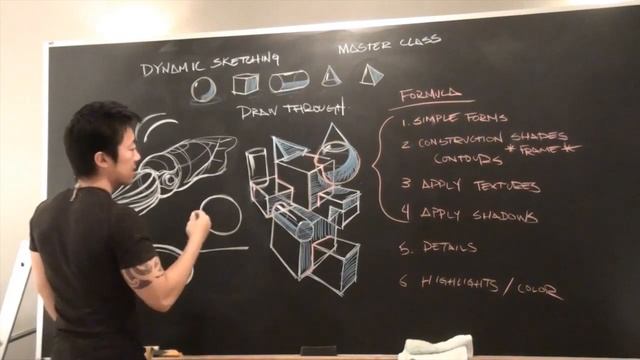 DYNAMIC SKETCHING
MASTER CLASS
DRAW THROUGH
FORMULA
1. SIMPLE FORMS
2 CONSTRUCTION SHAPES
CONTOURS *FRAME*
3 APPLY TEXTURES
4 APPLY SHADOWS
5. DETAILS
6 HIGHLIGHTS / COLOR